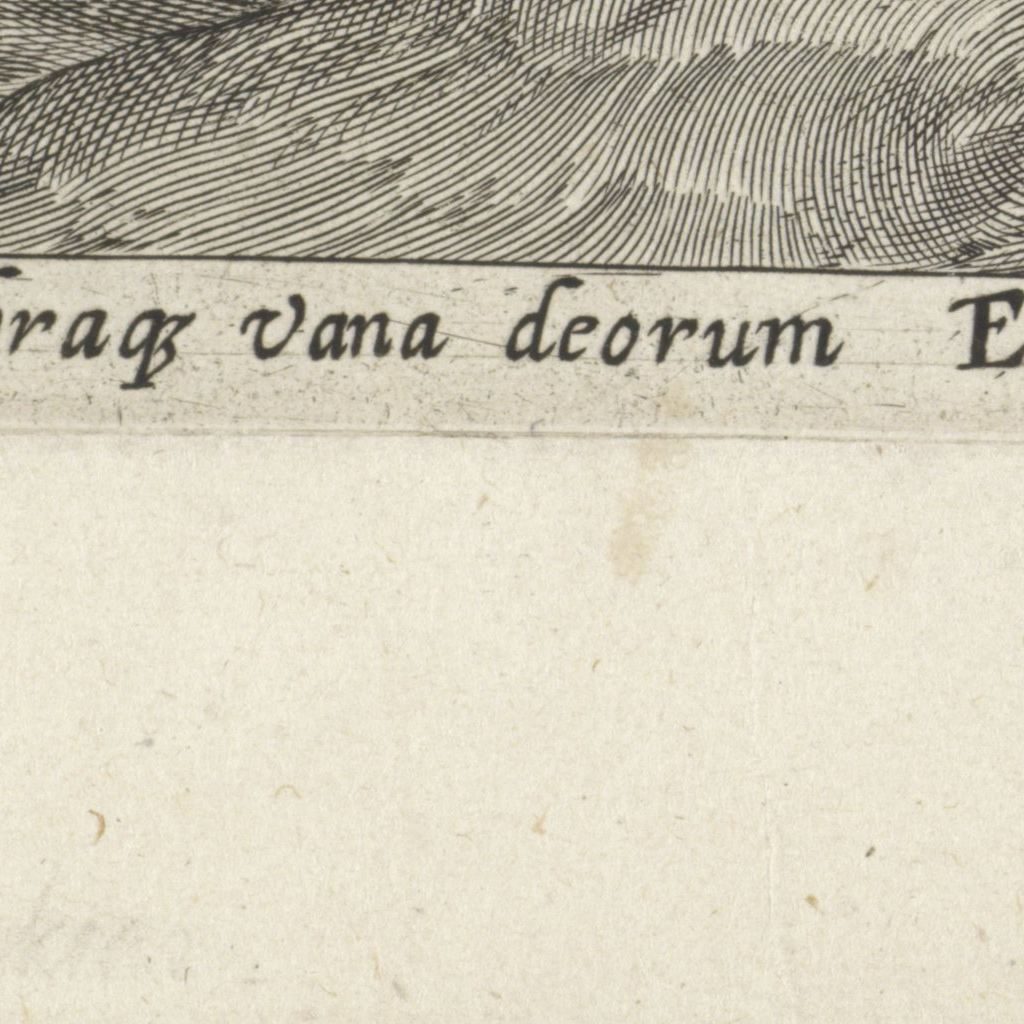 raqꝫ vana deorum E